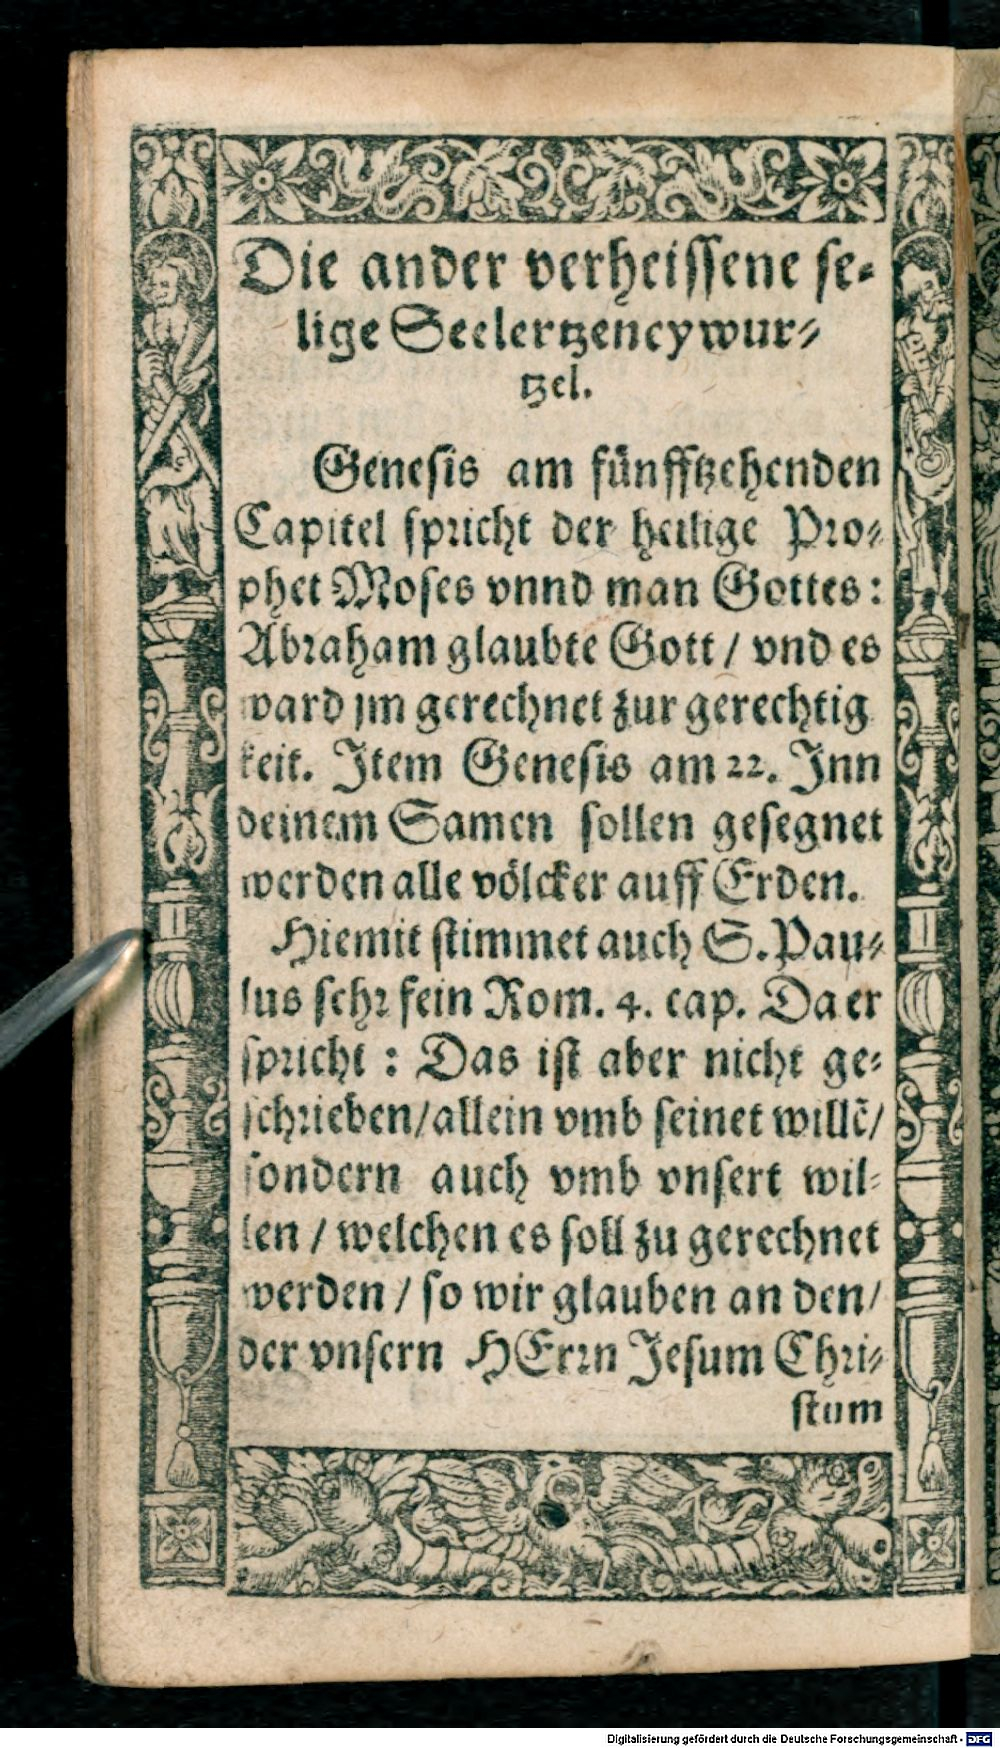 Die ander verheissene se-
lige Seelertzeneywur-
tzel.
Genesis am fünfftzehenden
Capitel spricht der heilige Pro-
phet Moses vnnd man Gottes:
Abraham glaubte Gott / vnd es
ward jm gerechnet zur gerechtig
keit. Item Genesis am 22. Inn
deinem Samen sollen gesegnet
werden alle völcker auff Erden.
Hiemit stimmet auch S. Pau-
lus sehr fein Rom. 4. cap. Da er
spricht : Das ist aber nicht ge-
schrieben/allein vmb seinet willē/
sondern auch vmb vnsert wil-
len / welchen es soll zu gerechnet
werden / so wir glauben an den/
der vnsern HErrn Jesum Chri-
stum
Digitalisierung gefördert durch die Deutsche Forschungsgemeinschaft - DFG